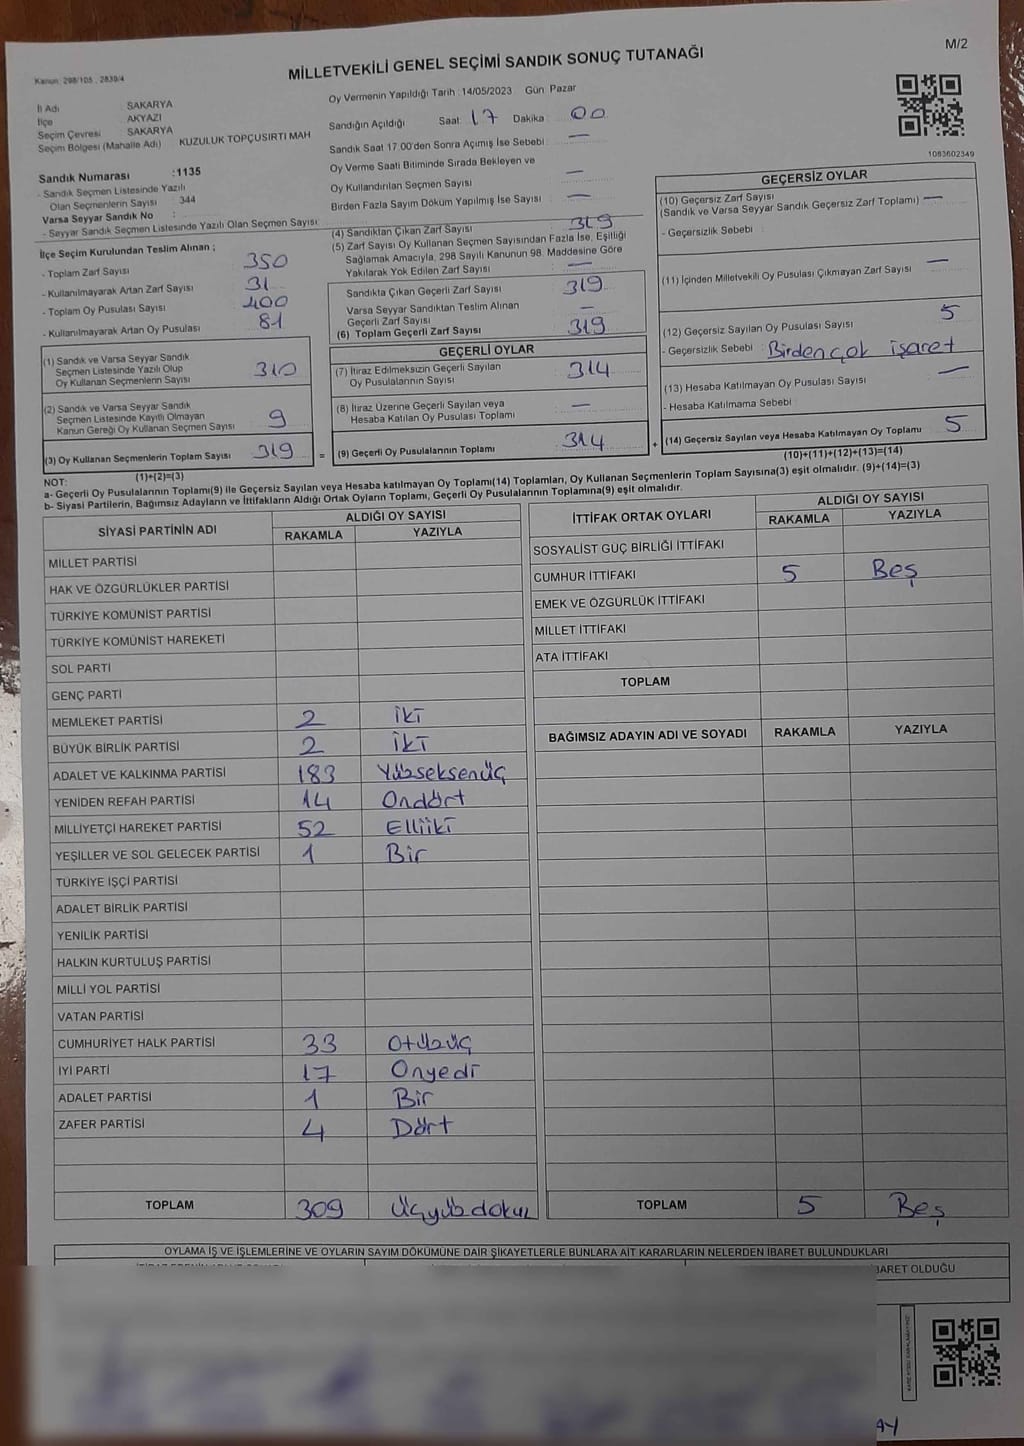 M/2
Kanun: 298/105 , 2839/4
MİLLETVEKİLİ GENEL SEÇİMİ SANDIK SONUÇ TUTANAĞI
İl Adı : SAKARYA
İlçe : AKYAZI
Seçim Çevresi : SAKARYA
Seçim Bölgesi (Mahalle Adı) KUZULUK TOPÇUSIRTI MAH
Sandık Numarası :1135
- Sandık Seçmen Listesinde Yazılı
Olan Seçmenlerin Sayısı : 344
Varsa Seyyar Sandık No :
- Seyyar Sandık Seçmen Listesinde Yazılı Olan Seçmen Sayısı:
Oy Vermenin Yapıldığı Tarih : 14/05/2023 Gün: Pazar
Sandığın Açıldığı Saat: 17 Dakika: 00
Sandık Saat 17:00'den Sonra Açımış İse Sebebi: —
Oy Verme Saati Bitiminde Sırada Bekleyen ve
Oy Kullandırılan Seçmen Sayısı —
Birden Fazla Sayım Döküm Yapılmış İse Sayısı —
1083602349
İlçe Seçim Kurulundan Teslim Alınan ;
- Toplam Zarf Sayısı 350
- Kullanılmayarak Artan Zarf Sayısı 31
- Toplam Oy Pusulası Sayısı 400
- Kullanılmayarak Artan Oy Pusulası 81
(1) Sandık ve Varsa Seyyar Sandık
Seçmen Listesinde Yazılı Olup
Oy Kullanan Seçmenlerin Sayısı 310
(2) Sandık ve Varsa Seyyar Sandık
Seçmen Listesinde Kayıtlı Olmayan
Kanun Gereği Oy Kullanan Seçmen Sayısı 9
(3) Oy Kullanan Seçmenlerin Toplam Sayısı 319 =
(1)+(2)=(3)
(4) Sandıktan Çıkan Zarf Sayısı 319
(5) Zarf Sayısı Oy Kullanan Seçmen Sayısından Fazla İse, Eşitliği
Sağlamak Amacıyla, 298 Sayılı Kanunun 98. Maddesine Göre
Yakılarak Yok Edilen Zarf Sayısı —
Sandıkta Çıkan Geçerli Zarf Sayısı 319
Varsa Seyyar Sandıktan Teslim Alınan
Geçerli Zarf Sayısı —
(6) Toplam Geçerli Zarf Sayısı 319
GEÇERLİ OYLAR
(7) İtiraz Edilmeksizin Geçerli Sayılan
Oy Pusulalarının Sayısı 314
(8) İtiraz Üzerine Geçerli Sayılan veya
Hesaba Katılan Oy Pusulası Toplamı —
(9) Geçerli Oy Pusulalarının Toplamı 314 +
GEÇERSİZ OYLAR
(10) Geçersiz Zarf Sayısı
(Sandık ve Varsa Seyyar Sandık Geçersiz Zarf Toplamı) —
- Geçersizlik Sebebi :
(11) İçinden Milletvekili Oy Pusulası Çıkmayan Zarf Sayısı —
(12) Geçersiz Sayılan Oy Pusulası Sayısı 5
- Geçersizlik Sebebi : Birden çok işaret
(13) Hesaba Katılmayan Oy Pusulası Sayısı —
- Hesaba Katılmama Sebebi :
(14) Geçersiz Sayılan veya Hesaba Katılmayan Oy Toplamı 5
(10)+(11)+(12)+(13)=(14)
NOT:
a- Geçerli Oy Pusulalarının Toplamı(9) ile Geçersiz Sayılan veya Hesaba katılmayan Oy Toplamı(14) Toplamları, Oy Kullanan Seçmenlerin Toplam Sayısına(3) eşit olmalıdır. (9)+(14)=(3)
b- Siyasi Partilerin, Bağımsız Adayların ve İttifakların Aldığı Ortak Oyların Toplamı, Geçerli Oy Pusulalarının Toplamına(9) eşit olmalıdır.
SİYASİ PARTİNİN ADI ALDIĞI OY SAYISI
RAKAMLA YAZIYLA
MİLLET PARTİSİ
HAK VE ÖZGÜRLÜKLER PARTİSİ
TÜRKİYE KOMÜNİST PARTİSİ
TÜRKİYE KOMÜNİST HAREKETİ
SOL PARTİ
GENÇ PARTİ
MEMLEKET PARTİSİ 2 İki
BÜYÜK BİRLİK PARTİSİ 2 İki
ADALET VE KALKINMA PARTİSİ 183 Yüzseksenüç
YENİDEN REFAH PARTİSİ 14 Ondört
MİLLİYETÇİ HAREKET PARTİSİ 52 Elliiki
YEŞİLLER VE SOL GELECEK PARTİSİ 1 Bir
TÜRKİYE İŞÇİ PARTİSİ
ADALET BİRLİK PARTİSİ
YENİLİK PARTİSİ
HALKIN KURTULUŞ PARTİSİ
MİLLİ YOL PARTİSİ
VATAN PARTİSİ
CUMHURİYET HALK PARTİSİ 33 Otüzüç
İYİ PARTİ 17 Onyedi
ADALET PARTİSİ 1 Bir
ZAFER PARTİSİ 4 Dört
TOPLAM 309 Üçyüzdokuz
İTTİFAK ORTAK OYLARI ALDIĞI OY SAYISI
RAKAMLA YAZIYLA
SOSYALİST GÜÇ BİRLİĞİ İTTİFAKI
CUMHUR İTTİFAKI 5 Beş
EMEK VE ÖZGÜRLÜK İTTİFAKI
MİLLET İTTİFAKI
ATA İTTİFAKI
TOPLAM
BAĞIMSIZ ADAYIN ADI VE SOYADI RAKAMLA YAZIYLA
TOPLAM 5 Beş
OYLAMA İŞ VE İŞLEMLERİNE VE OYLARIN SAYIM DÖKÜMÜNE DAİR ŞİKAYETLERLE BUNLARA AİT KARARLARIN NELERDEN İBARET BULUNDUKLARI
BARET OLDUĞU
AY